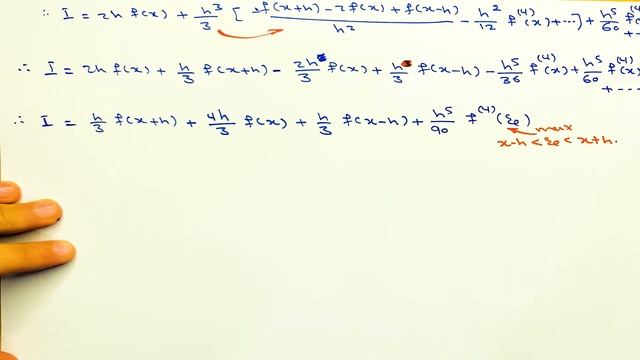 ∴ I = 2h f(x) + h³/3 [ f(x+h) - 2f(x) + f(x-h) / h² - h²/12 f⁽⁴⁾(x) + ... ] + h⁵/60 f⁽⁴⁾
+ ..
∴ I = 2h f(x) + h/3 f(x+h) - 2h/3 f(x) + h/3 f(x-h) - h⁵/36 f⁽⁴⁾(x) + h⁵/60 f⁽⁴⁾(x)
+ ....
∴ I = h/3 f(x+h) + 4h/3 f(x) + h/3 f(x-h) + h⁵/90 f⁽⁴⁾(ξe)
max
x-h < ξe < x+h.